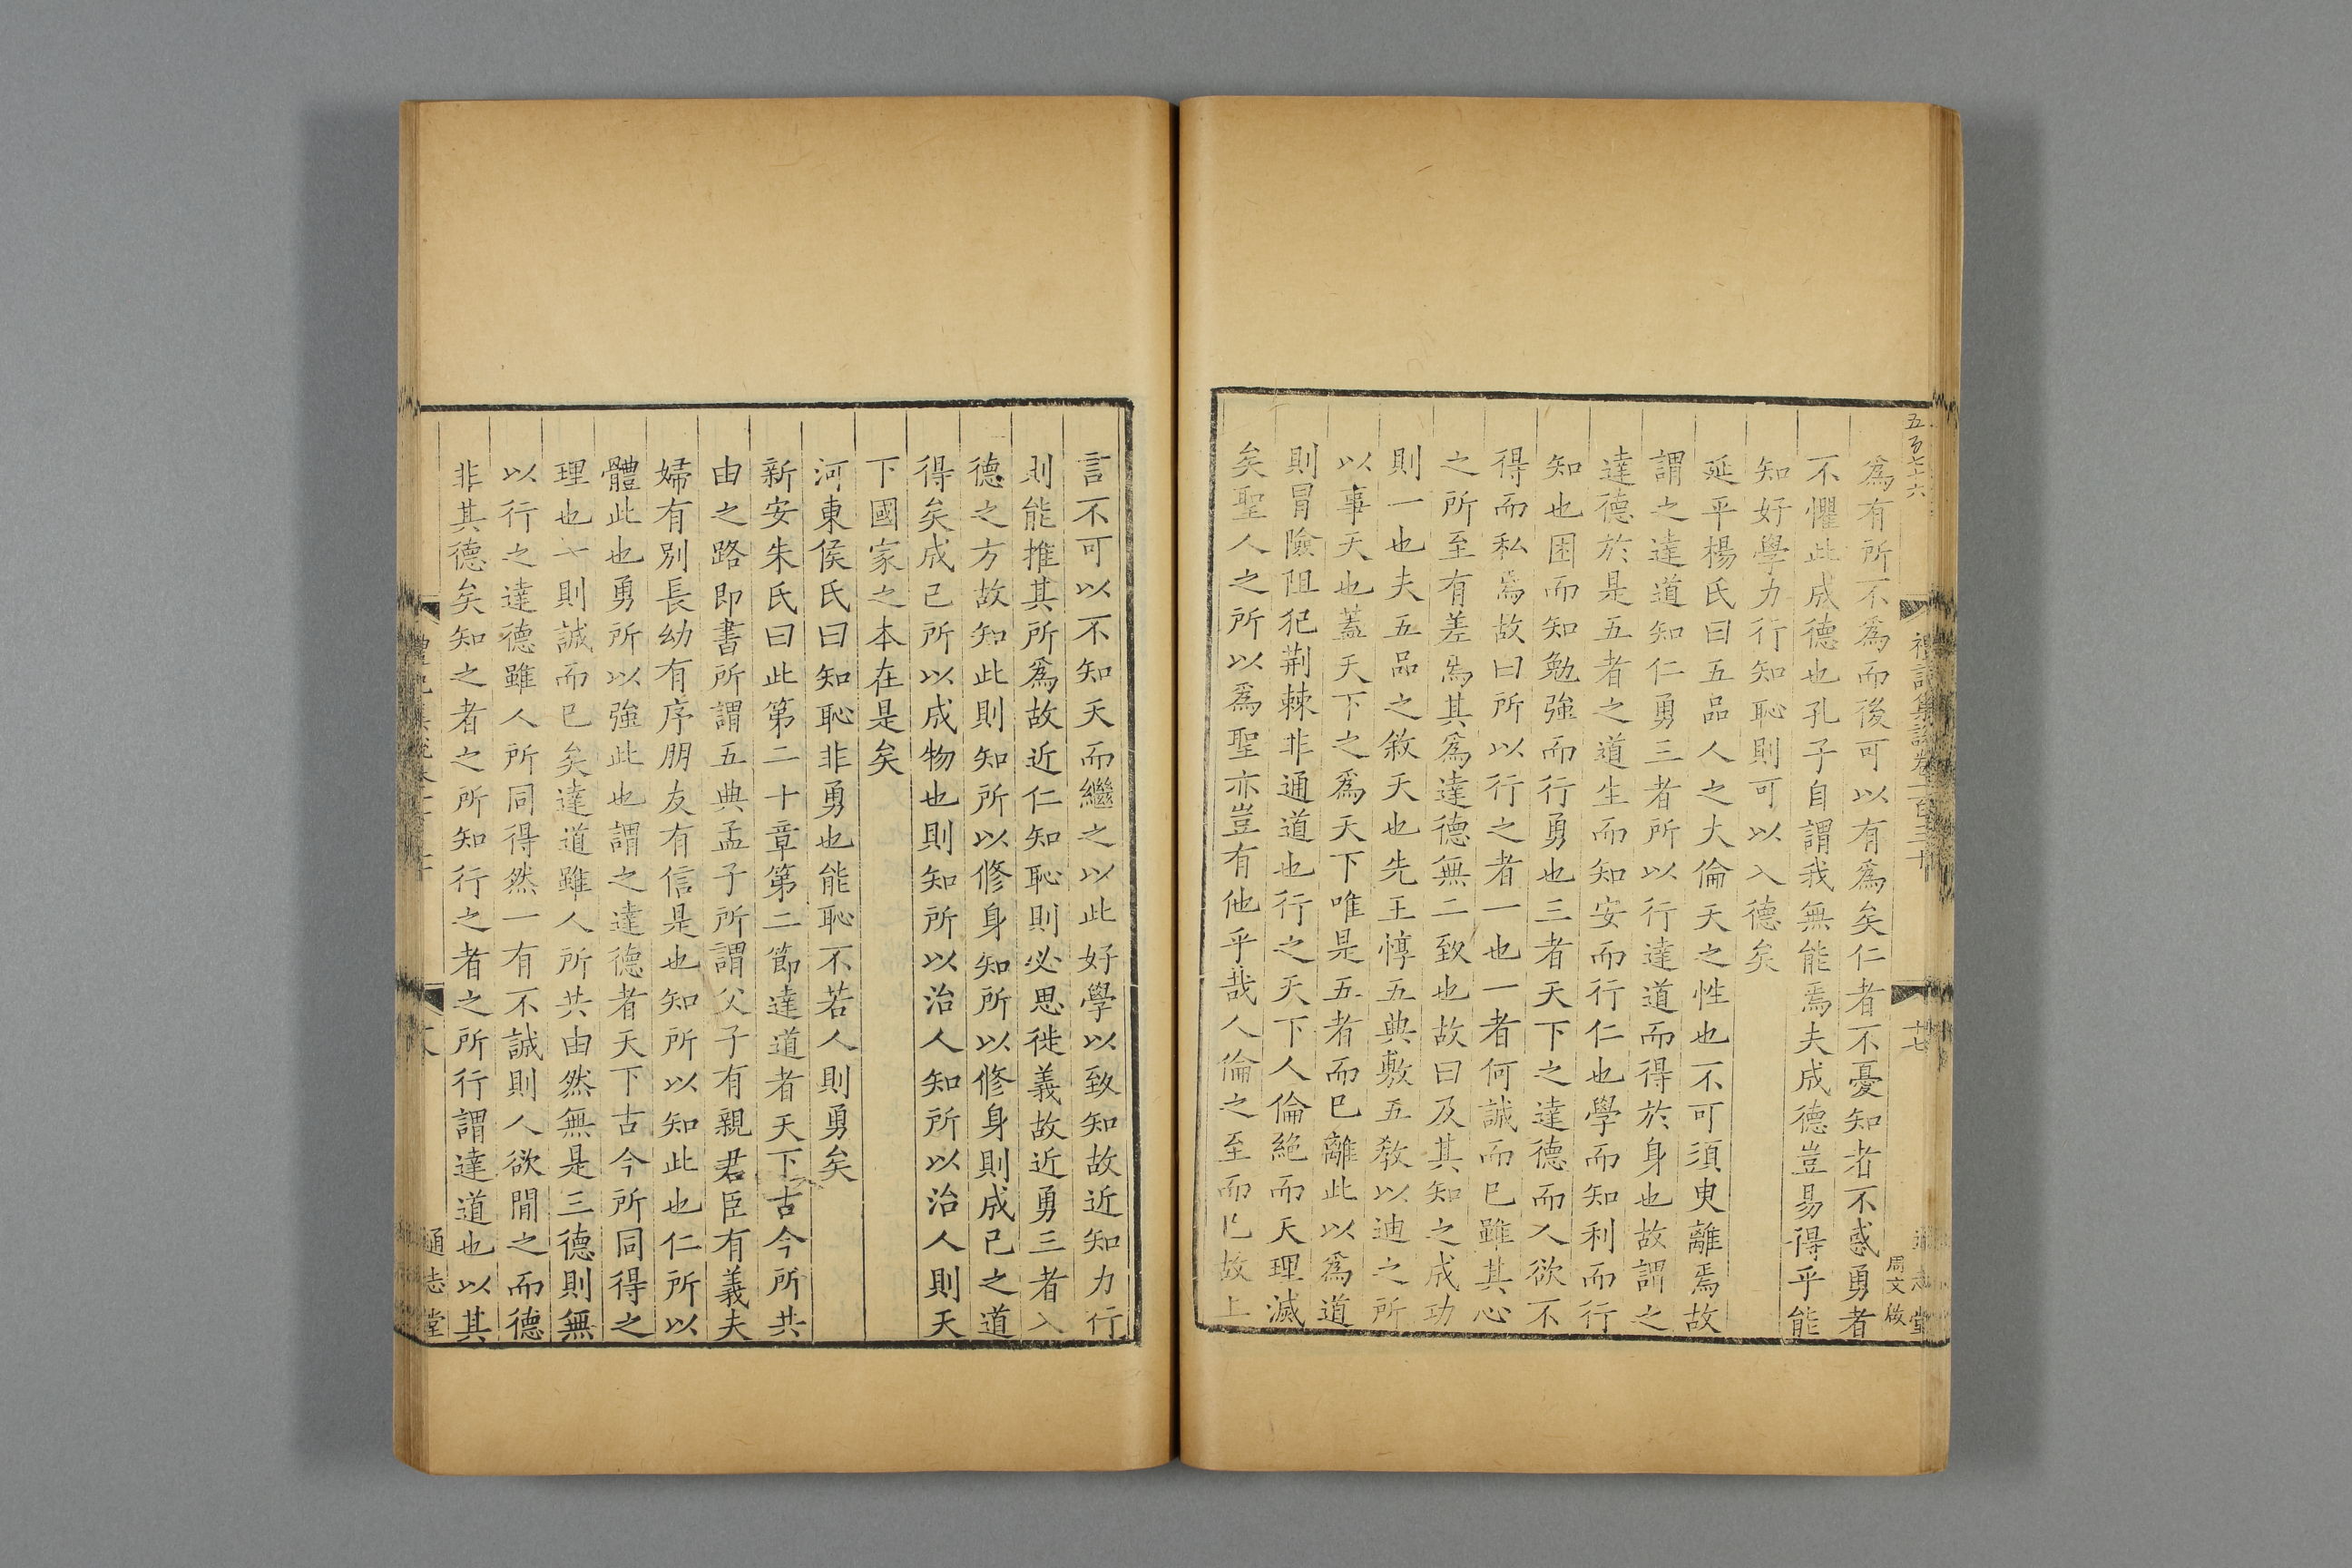 五百七十六
禮記集說卷一百三十
十七
通志堂
周文啟
爲有所不爲而後可以有爲矣仁者不憂知者不惑勇者
不懼此成德也孔子自謂我無能焉夫成德豈易得乎能
知好學力行知恥則可以入德矣
延平楊氏曰五品人之大倫天之性也不可須臾離焉故
謂之達道知仁勇三者所以行達道而得於身也故謂之
達德於是五者之道生而知安而行仁也學而知利而行
知也困而知勉強而行勇也三者天下之達德而人欲不
得而私焉故曰所以行之者一也一者何誠而已雖其心
之所至有差焉其爲達德無二致也故曰及其知之成功
則一也夫五品之敘天也先王惇五典敷五教以迪之所
以事天也蓋天下之爲天下唯是五者而已離此以爲道
則冒險阻犯荆棘非通道也行之天下人倫絶而天理滅
矣聖人之所以爲聖亦豈有他乎哉人倫之至而已故上
言不可以不知天而繼之以此好學以致知故近知力行
則能推其所爲故近仁知恥則必思徙義故近勇三者入
德之方故知此則知所以修身知所以修身則成己之道
得矣成己所以成物也則知所以治人知所以治人則天
下國家之本在是矣
河東侯氏曰知恥非勇也能恥不若人則勇矣
新安朱氏曰此第二十章第二節達道者天下古今所共
由之路即書所謂五典孟子所謂父子有親君臣有義夫
婦有別長幼有序朋友有信是也知所以知此也仁所以
體此也勇所以強此也謂之達德者天下古今所同得之
理也一則誠而已矣達道雖人所共由然無是三德則無
以行之達德雖人所同得然一有不誠則人欲閒之而德
非其德矣知之者之所知行之者之所行謂達道也以其
通志堂